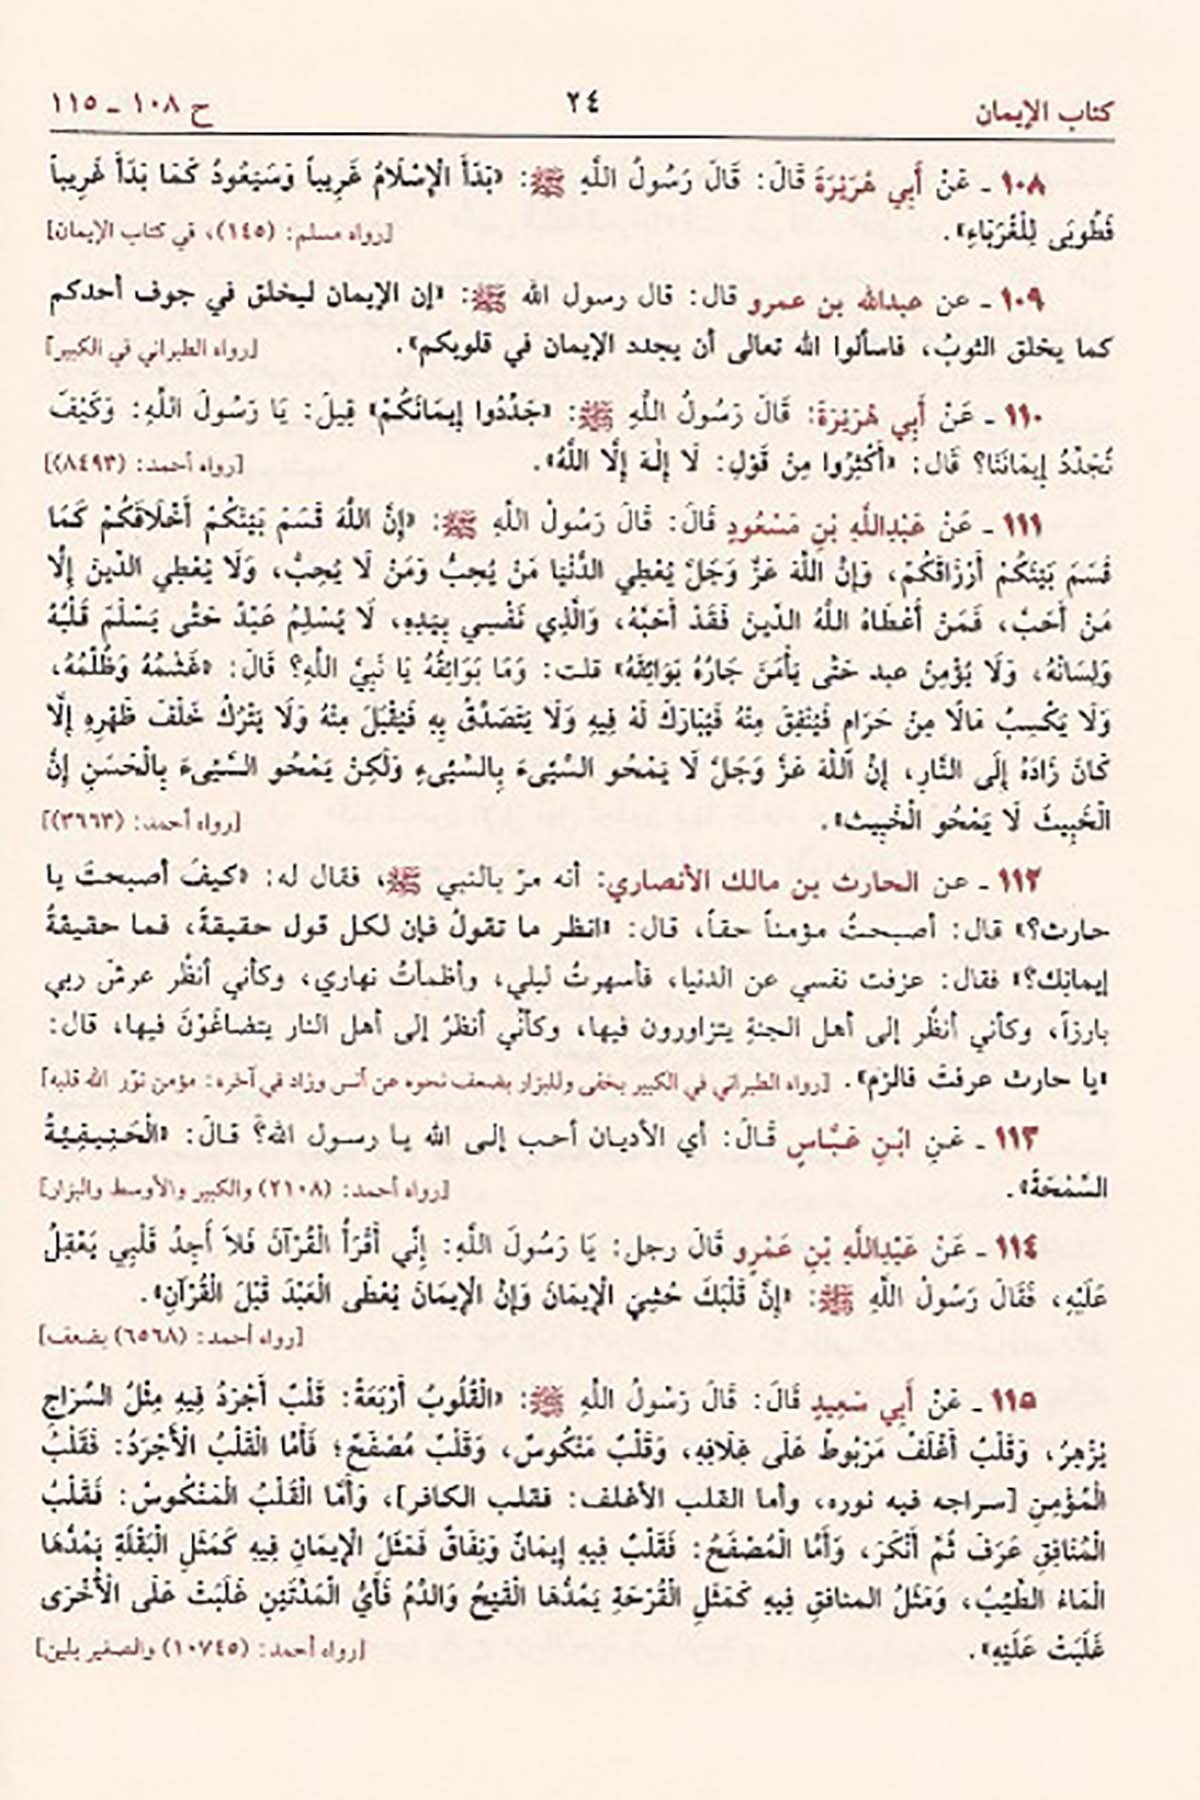 كتاب الإيمان ٢٤ ح ١٠٨ ـ ١١٥
١٠٨ ـ عَنْ أَبِي هُرَيْرَةَ قَالَ: قَالَ رَسُولُ اللَّهِ ﷺ: «بَدَأَ الْإِسْلَامُ غَرِيباً وَسَيَعُودُ كَمَا بَدَأَ غَرِيباً
فَطُوبَى لِلْغُرَبَاءِ». [رواه مسلم: (١٤٥)، في كتاب الإيمان]
١٠٩ ـ عن عبدالله بن عمرو قال: قال رسول الله ﷺ: «إن الإيمان ليخلق في جوف أحدكم
كما يخلق الثوبُ، فاسألوا الله تعالى أن يجدد الإيمان في قلوبكم». [رواه الطبراني في الكبير]
١١٠ ـ عَنْ أَبِي هُرَيْرَةَ: قَالَ رَسُولُ اللَّهِ ﷺ: «جَدِّدُوا إِيمَانَكُمْ» قِيلَ: يَا رَسُولَ اللَّهِ: وَكَيْفَ
نُجَدِّدُ إِيمَانَنَا؟ قَال: «أَكْثِرُوا مِنْ قَوْلِ: لَا إِلَهَ إِلَّا اللَّهُ». [رواه أحمد: (٨٤٩٣)]
١١١ ـ عَنْ عَبْدِاللَّهِ بْنِ مَسْعُودٍ قَالَ: قَالَ رَسُولُ اللَّهِ ﷺ: «إِنَّ اللَّهَ قَسَمَ بَيْنَكُمْ أَخْلَاقَكُمْ كَمَا
قَسَمَ بَيْنَكُمْ أَرْزَاقَكُمْ، وَإِنَّ اللَّهَ عَزَّ وَجَلَّ يُعْطِي الدُّنْيَا مَنْ يُحِبُّ وَمَنْ لَا يُحِبُّ، وَلَا يُعْطِي الدِّينَ إِلَّا
مَنْ أَحَبَّ، فَمَنْ أَعْطَاهُ اللَّهُ الدِّينَ فَقَدْ أَحَبَّهُ، وَالَّذِي نَفْسِي بِيَدِهِ، لَا يُسْلِمُ عَبْدٌ حَتَّى يَسْلَمَ قَلْبُهُ
وَلِسَانُهُ، وَلَا يُؤْمِنُ عبد حَتَّى يَأْمَنَ جَارُهُ بَوَائِقَهُ» قلت: وَمَا بَوَائِقُهُ يَا نَبِيَّ اللَّهِ؟ قَالَ: «غَشْمُهُ وَظُلْمُهُ،
وَلَا يَكْسِبُ مَالًا مِنْ حَرَامٍ فَيُنْفِقَ مِنْهُ فَيُبَارَكَ لَهُ فِيهِ وَلَا يَتَصَدَّقُ بِهِ فَيُقْبَلَ مِنْهُ وَلَا يَتْرُكُ خَلْفَ ظَهْرِهِ إِلَّا
كَانَ زَادَهُ إِلَى النَّارِ، إِنَّ اللَّهَ عَزَّ وَجَلَّ لَا يَمْحُو السَّيِّىءَ بِالسَّيِّىءِ وَلَكِنْ يَمْحُو السَّيِّىءَ بِالْحَسَنِ إِنَّ
الْخَبِيثَ لَا يَمْحُو الْخَبِيثَ». [رواه أحمد: (٣٦٦٣)]
١١٢ ـ عن الحارث بن مالك الأنصاري: أنه مرّ بالنبي ﷺ، فقال له: «كيفَ أصبحتَ يا
حارث؟» قال: أصبحتُ مؤمناً حقاً، قال: «انظر ما تقولُ فإن لكل قول حقيقةً، فما حقيقةُ
إيمانِك؟» فقال: عزفت نفسي عن الدنيا، فأسهرتُ ليلي، وأظمأتُ نهاري، وكأني أنظُر عرشَ ربي
بارزاً، وكأني أنظُر إلى أهل الجنةِ يتزاورون فيها، وكأنّي أنظرُ إلى أهل النار يتضاغَوْنَ فيها، قال:
«يا حارث عرفتَ فالزم». [رواه الطبراني في الكبير بخفى وللبزار بضعف نحوه عن أنس وزاد في آخره: مؤمن نوّر الله قلبه]
١١٣ ـ عَنِ ابْنِ عَبَّاسٍ قَالَ: أي الأديان أحب إلى الله يا رسول الله؟ قالَ: «الْحَنِيفِيَّةُ
السَّمْحَةُ». [رواه أحمد: (٢١٠٨) والكبير والأوسط والبزار]
١١٤ ـ عَنْ عَبْدِاللَّهِ بْنِ عَمْرٍو قَالَ رجل: يَا رَسُولَ اللَّهِ: إِنِّي أَقْرَأُ الْقُرْآنَ فَلاَ أَجِدُ قَلْبِي يَعْقِلُ
عَلَيْهِ، فَقَالَ رَسُولُ اللَّهِ ﷺ: «إِنَّ قَلْبَكَ حُشِيَ الْإِيمَانَ وَإِنَّ الْإِيمَانَ يُعْطَى الْعَبْدَ قَبْلَ الْقُرْآنِ».
[رواه أحمد: (٦٥٦٨) بضعف]
١١٥ ـ عَنْ أَبِي سَعِيدٍ قَالَ: قَالَ رَسُولُ اللَّهِ ﷺ: «الْقُلُوبُ أَرْبَعَةٌ: قَلْبٌ أَجْرَدُ فِيهِ مِثْلُ السِّرَاجِ
يُزْهِرُ، وَقَلْبٌ أَغْلَفُ مَرْبُوطٌ عَلَى غِلَافِهِ، وَقَلْبٌ مَنْكُوسٌ، وَقَلْبٌ مُصْفَحٌ؛ فَأَمَّا الْقَلْبُ الْأَجْرَدُ: فَقَلْبُ
الْمُؤْمِنِ [سراجه فيه نوره، وأما القلب الأغلف: فقلب الكافر]، وَأَمَّا الْقَلْبُ الْمَنْكُوسُ: فَقَلْبُ
الْمُنَافِقِ عَرَفَ ثُمَّ أَنْكَرَ، وَأَمَّا الْمُصْفَحُ: فَقَلْبٌ فِيهِ إِيمَانٌ وَنِفَاقٌ فَمَثَلُ الْإِيمَانِ فِيهِ كَمَثَلِ الْبَقْلَةِ يَمُدُّهَا
الْمَاءُ الطَّيِّبُ، وَمَثَلُ المنافقِ فِيهِ كَمَثَلِ الْقُرْحَةِ يَمُدُّهَا الْقَيْحُ وَالدَّمُ فَأَيُّ الْمَدَّتَيْنِ غَلَبَتْ عَلَى الْأُخْرَى
غَلَبَتْ عَلَيْهِ». [رواه أحمد: (١٠٧٤٥) والصغير بلين]